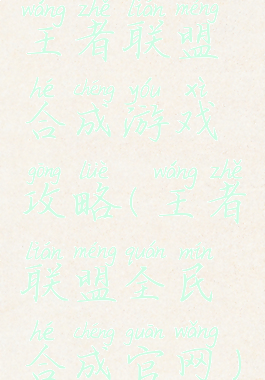 wáng zhě lián méng
王者联盟
hé chéng yóu xì
合成游戏
gōng lüè wáng zhě
攻略(王者
lián méng quán mín
联盟全民
hé chéng guān wǎng
合成官网)